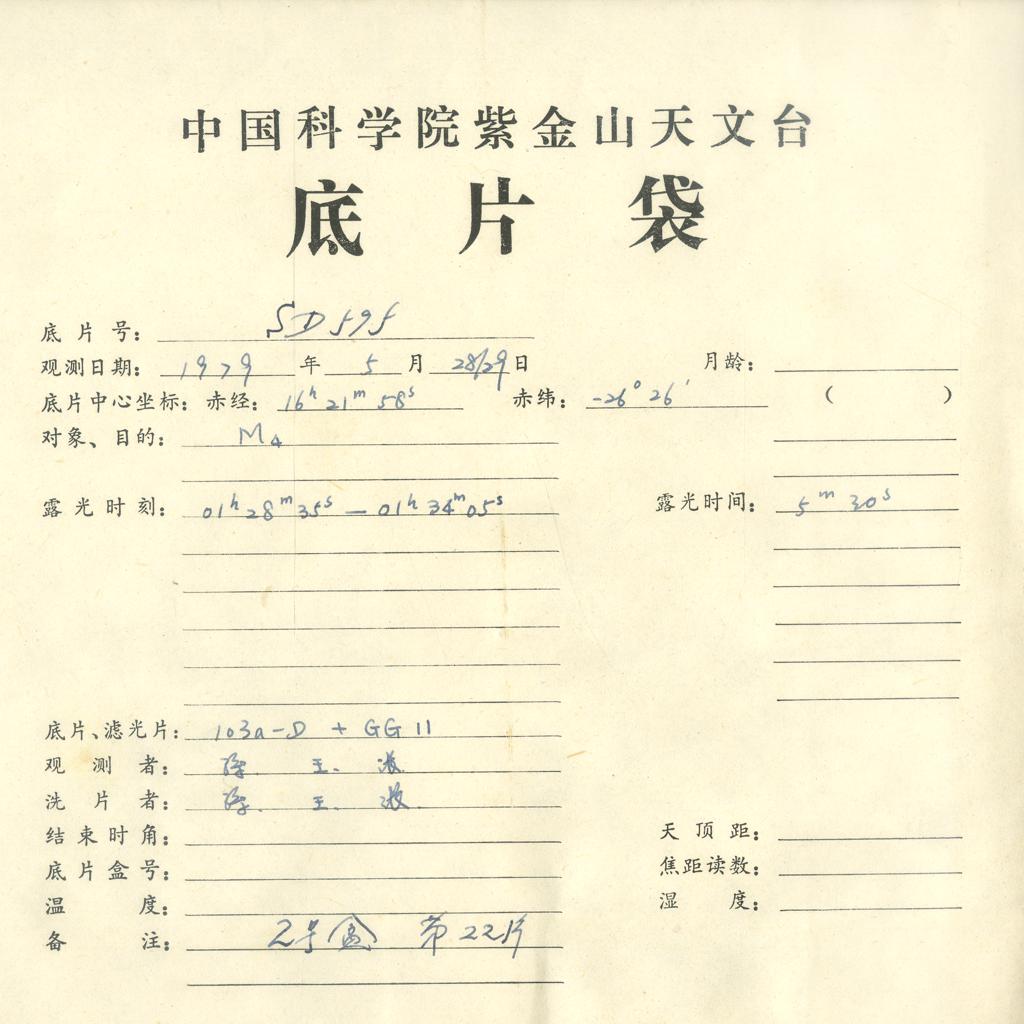 中国科学院紫金山天文台
底片袋
底片号: SD595
观测日期: 1979 年 5 月 28/29 日 月龄:
底片中心坐标: 赤经: 16h 21m 58s 赤纬: -26° 26′ ( )
对象、目的: M4
露光时刻: 01h 28m 35s — 01h 34m 05s 露光时间: 5m 30s
底片、滤光片: 103a-D + GG 11
观测者: 王.
洗片者: 王.
结束时角: 天顶距:
底片盒号: 焦距读数:
温度: 湿度:
备注: 2号盒 第22片